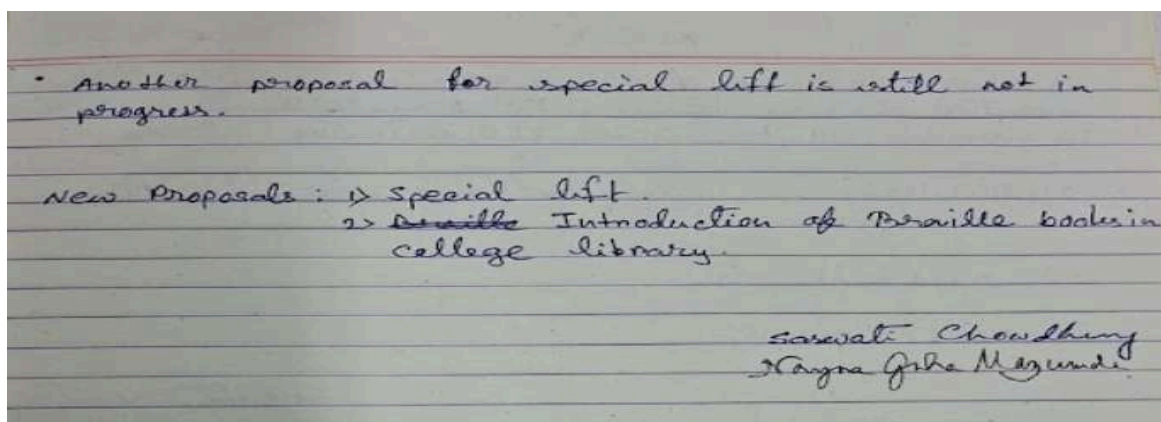 • Another proposal for special lift is still not in
progress.
New Proposals : 1) Special lift.
2) Braille Introduction of Braille books in
college library.
Saswati Chowdhury
Nayna Guha Mazumder